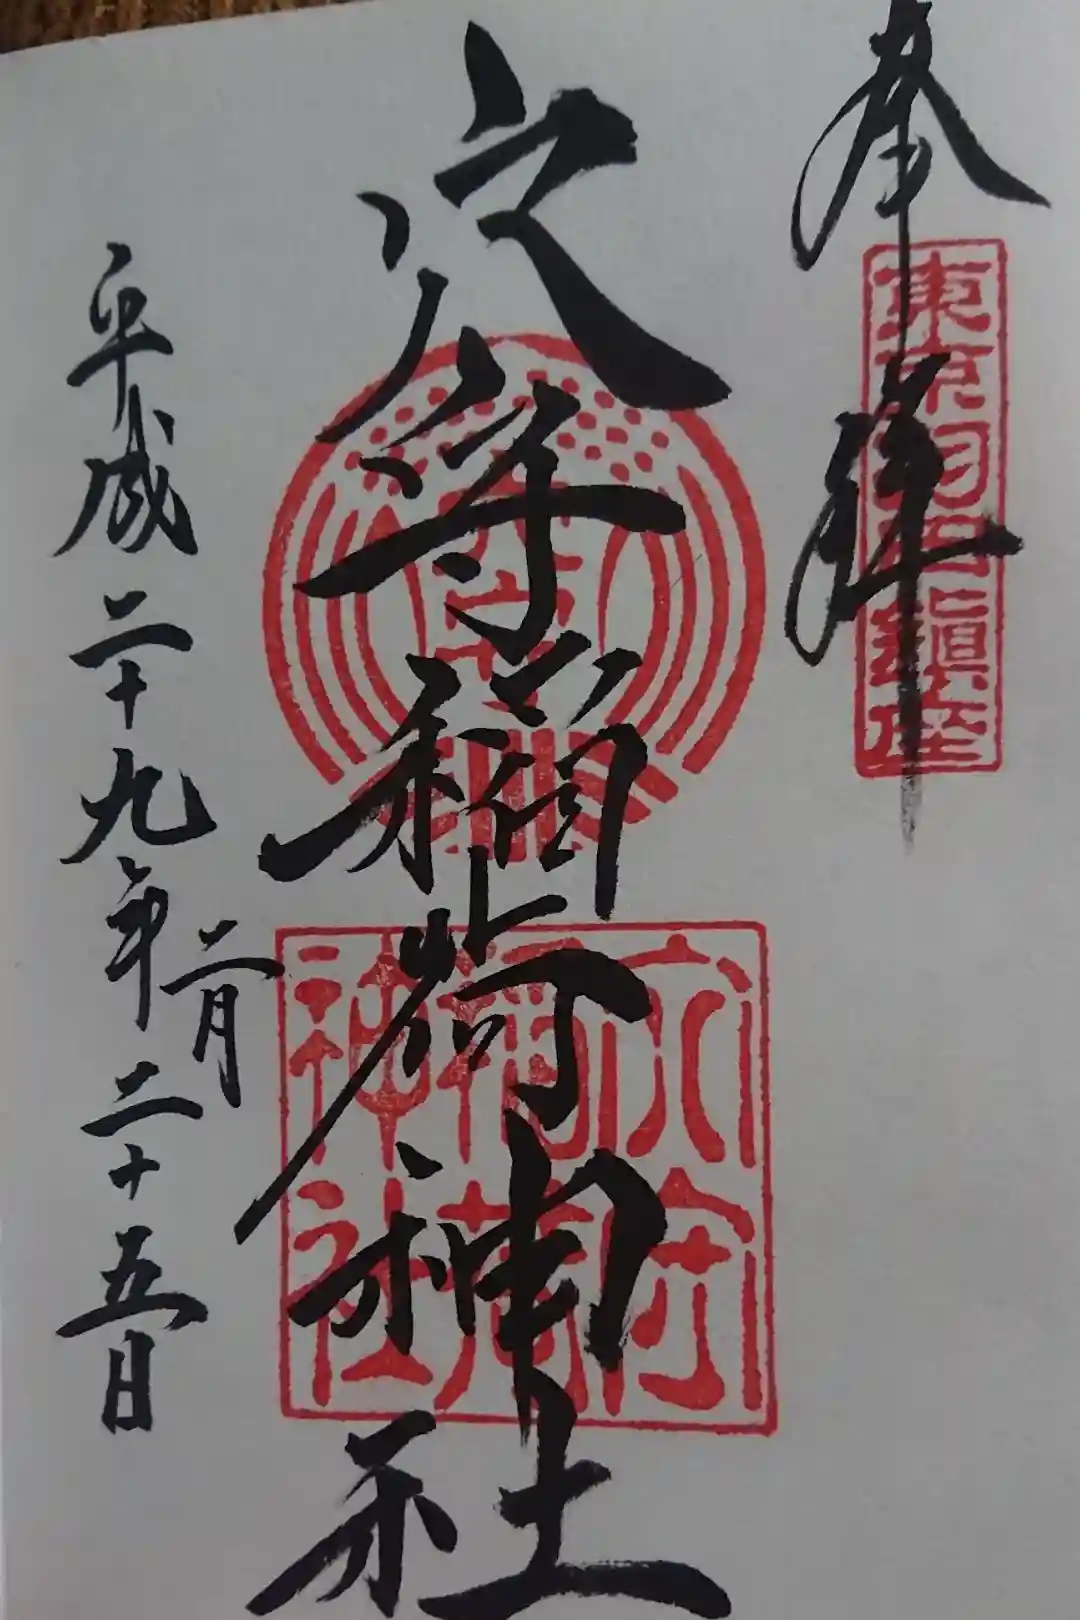 奉拝
東京羽田鎮座
穴守稲荷神社
穴守
穴守
稲荷
神社
平成二十九年
二月
二十五日